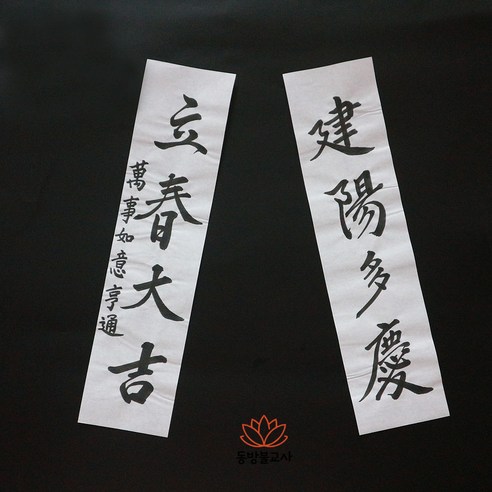 立春大吉
萬事如意亨通
建陽多慶
동방불교사